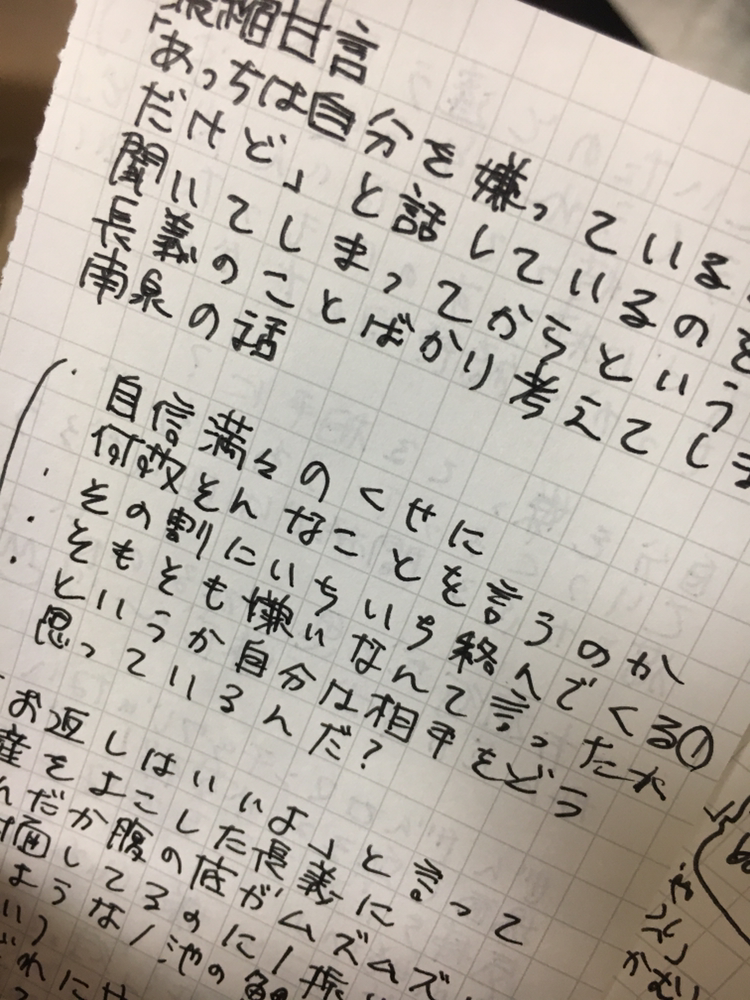 甘言
「あっちは自分を嫌っている
だけど」と話しているのを
聞いてしまってからという
長義のことばかり考えてしま
南泉の話
・自信満々のくせに
何故そんなことを言うのか
・その割にいちいち絡んでくる①
・そもそも嫌いなんて言ったか
・というか自分は相手をどう
思っているんだ?
お返しはいいよ」と言って
産をよこした長義に
んだか腹の底がムズムズ
してるのに1振
ような/池の
い)
れにせ
かむい